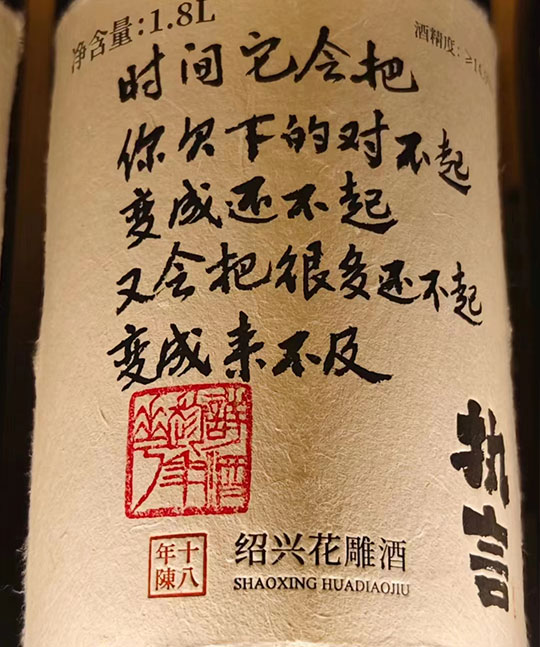 净含量:1.8L
酒精度:≥1
时间它会把
你欠下的对不起
变成还不起
又会把很多还不起
变成来不及
诗酒趁年华
执言
十八年陳
绍兴花雕酒
SHAOXING HUADIAOJIU